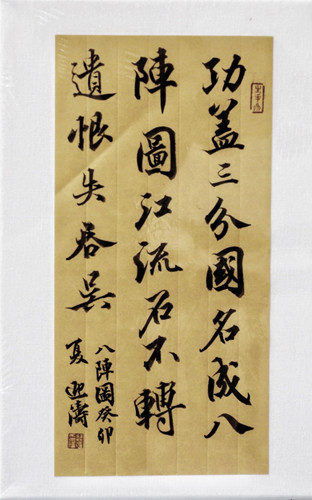 功盖三分國名成八
陣圖江流石不轉
遺恨失吞吴
八陣圖癸卯
夏迎濤